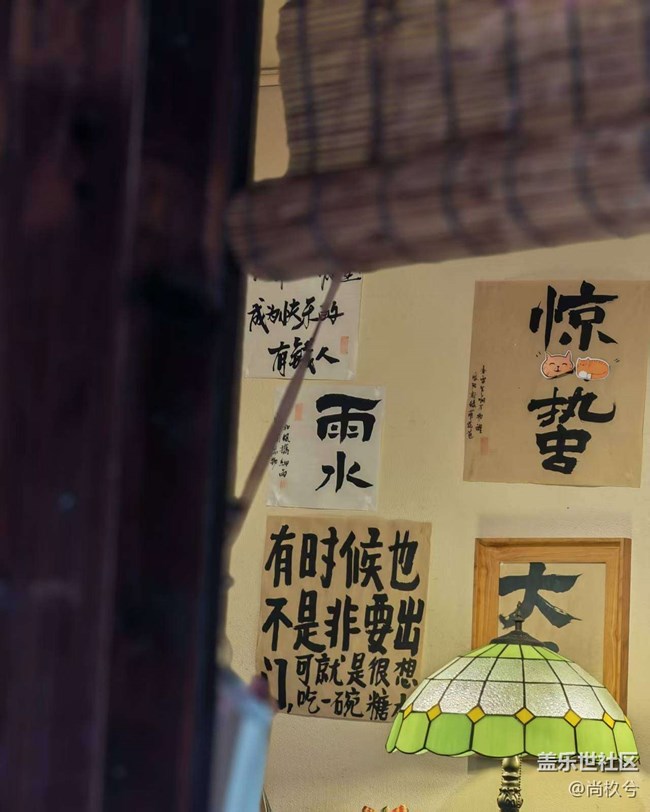 成为快乐的
有钱人
雨
水
惊
蛰
有时候也
不是非要出
门,可就是很想
吃一碗糖水
大
盖乐世社区
@尚杦兮